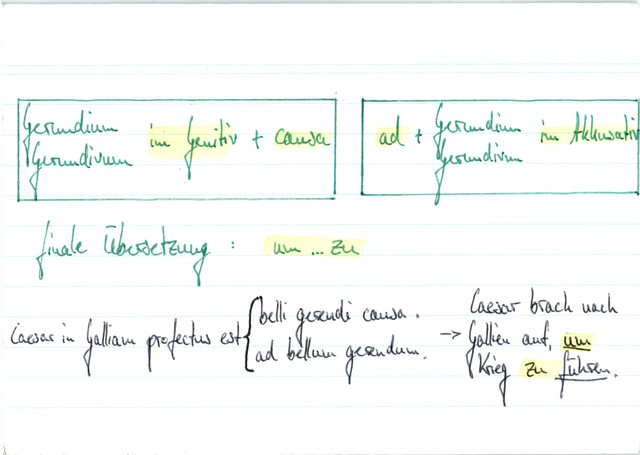 Gerundium
Gerundivum
im Genitiv + causa
ad +
Gerundium
Gerundivum
im Akkusativ
finale Übersetzung : um ... zu
Caesar in Galliam profectus est
belli gerendi causa.
ad bellum gerendum.
→ Caesar brach nach
Gallien auf, um
Krieg zu führen.